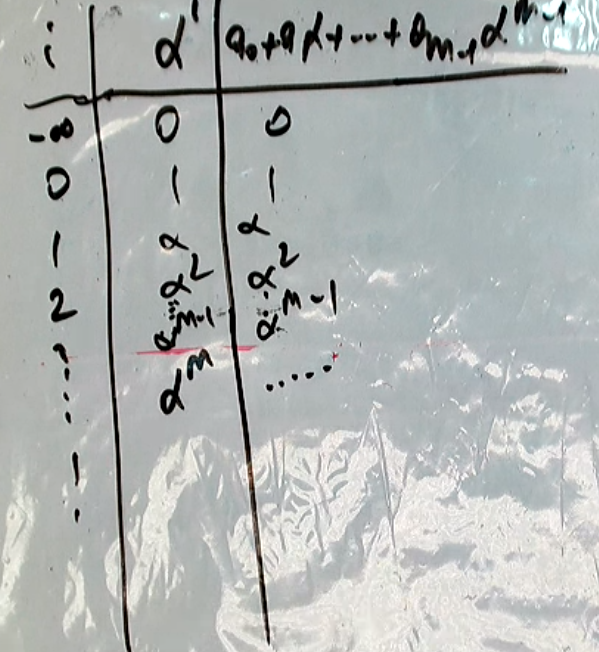 i α^i a₀+a₁α+...+a_{m-1}α^{m-1}
-∞ 0 0
0 1 1
1 α α
2 α² α²
⋮ α^{m-1} α^{m-1}
⋮ α^m .....